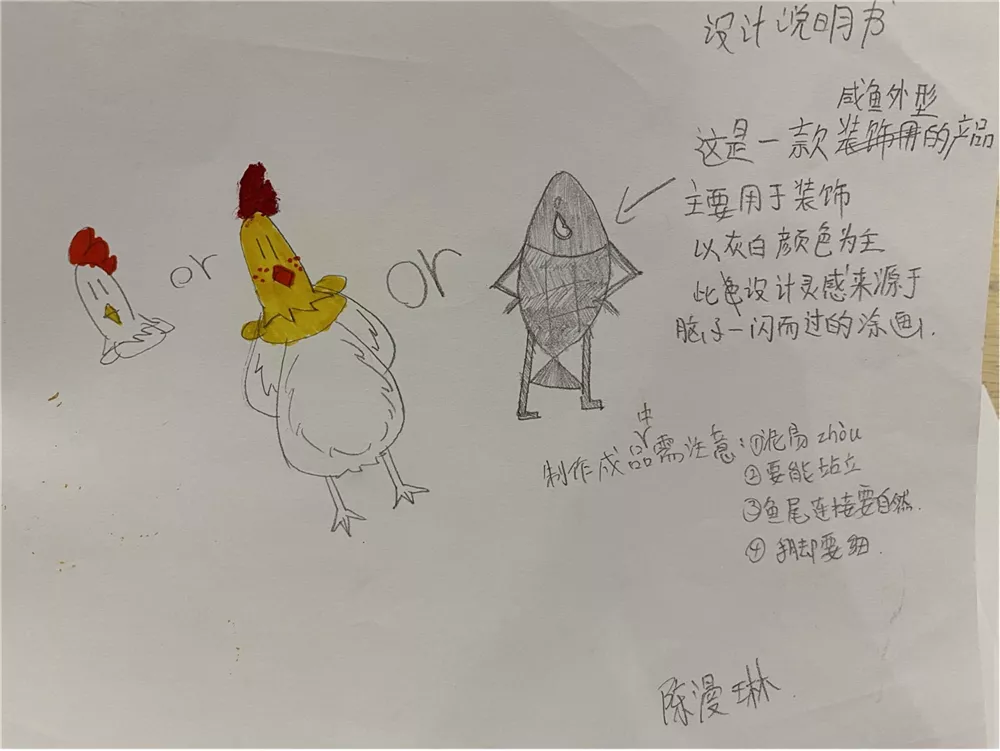 设计说明书
咸鱼外型
这是一款装饰用的产品
主要用于装饰
以灰白颜色为主
此色设计灵感来源于
脑子一闪而过的涂画.
or
or
中
制作成品需注意：①泥易zhòu
②要能站立
③鱼尾连接要自然.
④手脚要细.
陈漫琳